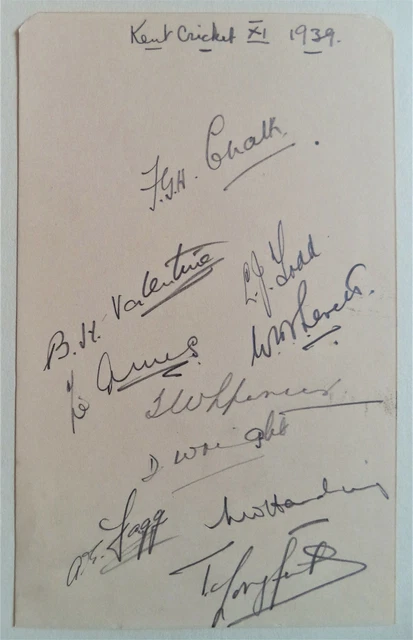 Kent Cricket XI 1939.
F.G.H. Chalk.
B.H. Valentine
L.J. Todd
Les Ames
W.H.V. Levett.
T W Spencer
D. Wright
A.E. Fagg
N W Harding
T. Longfield